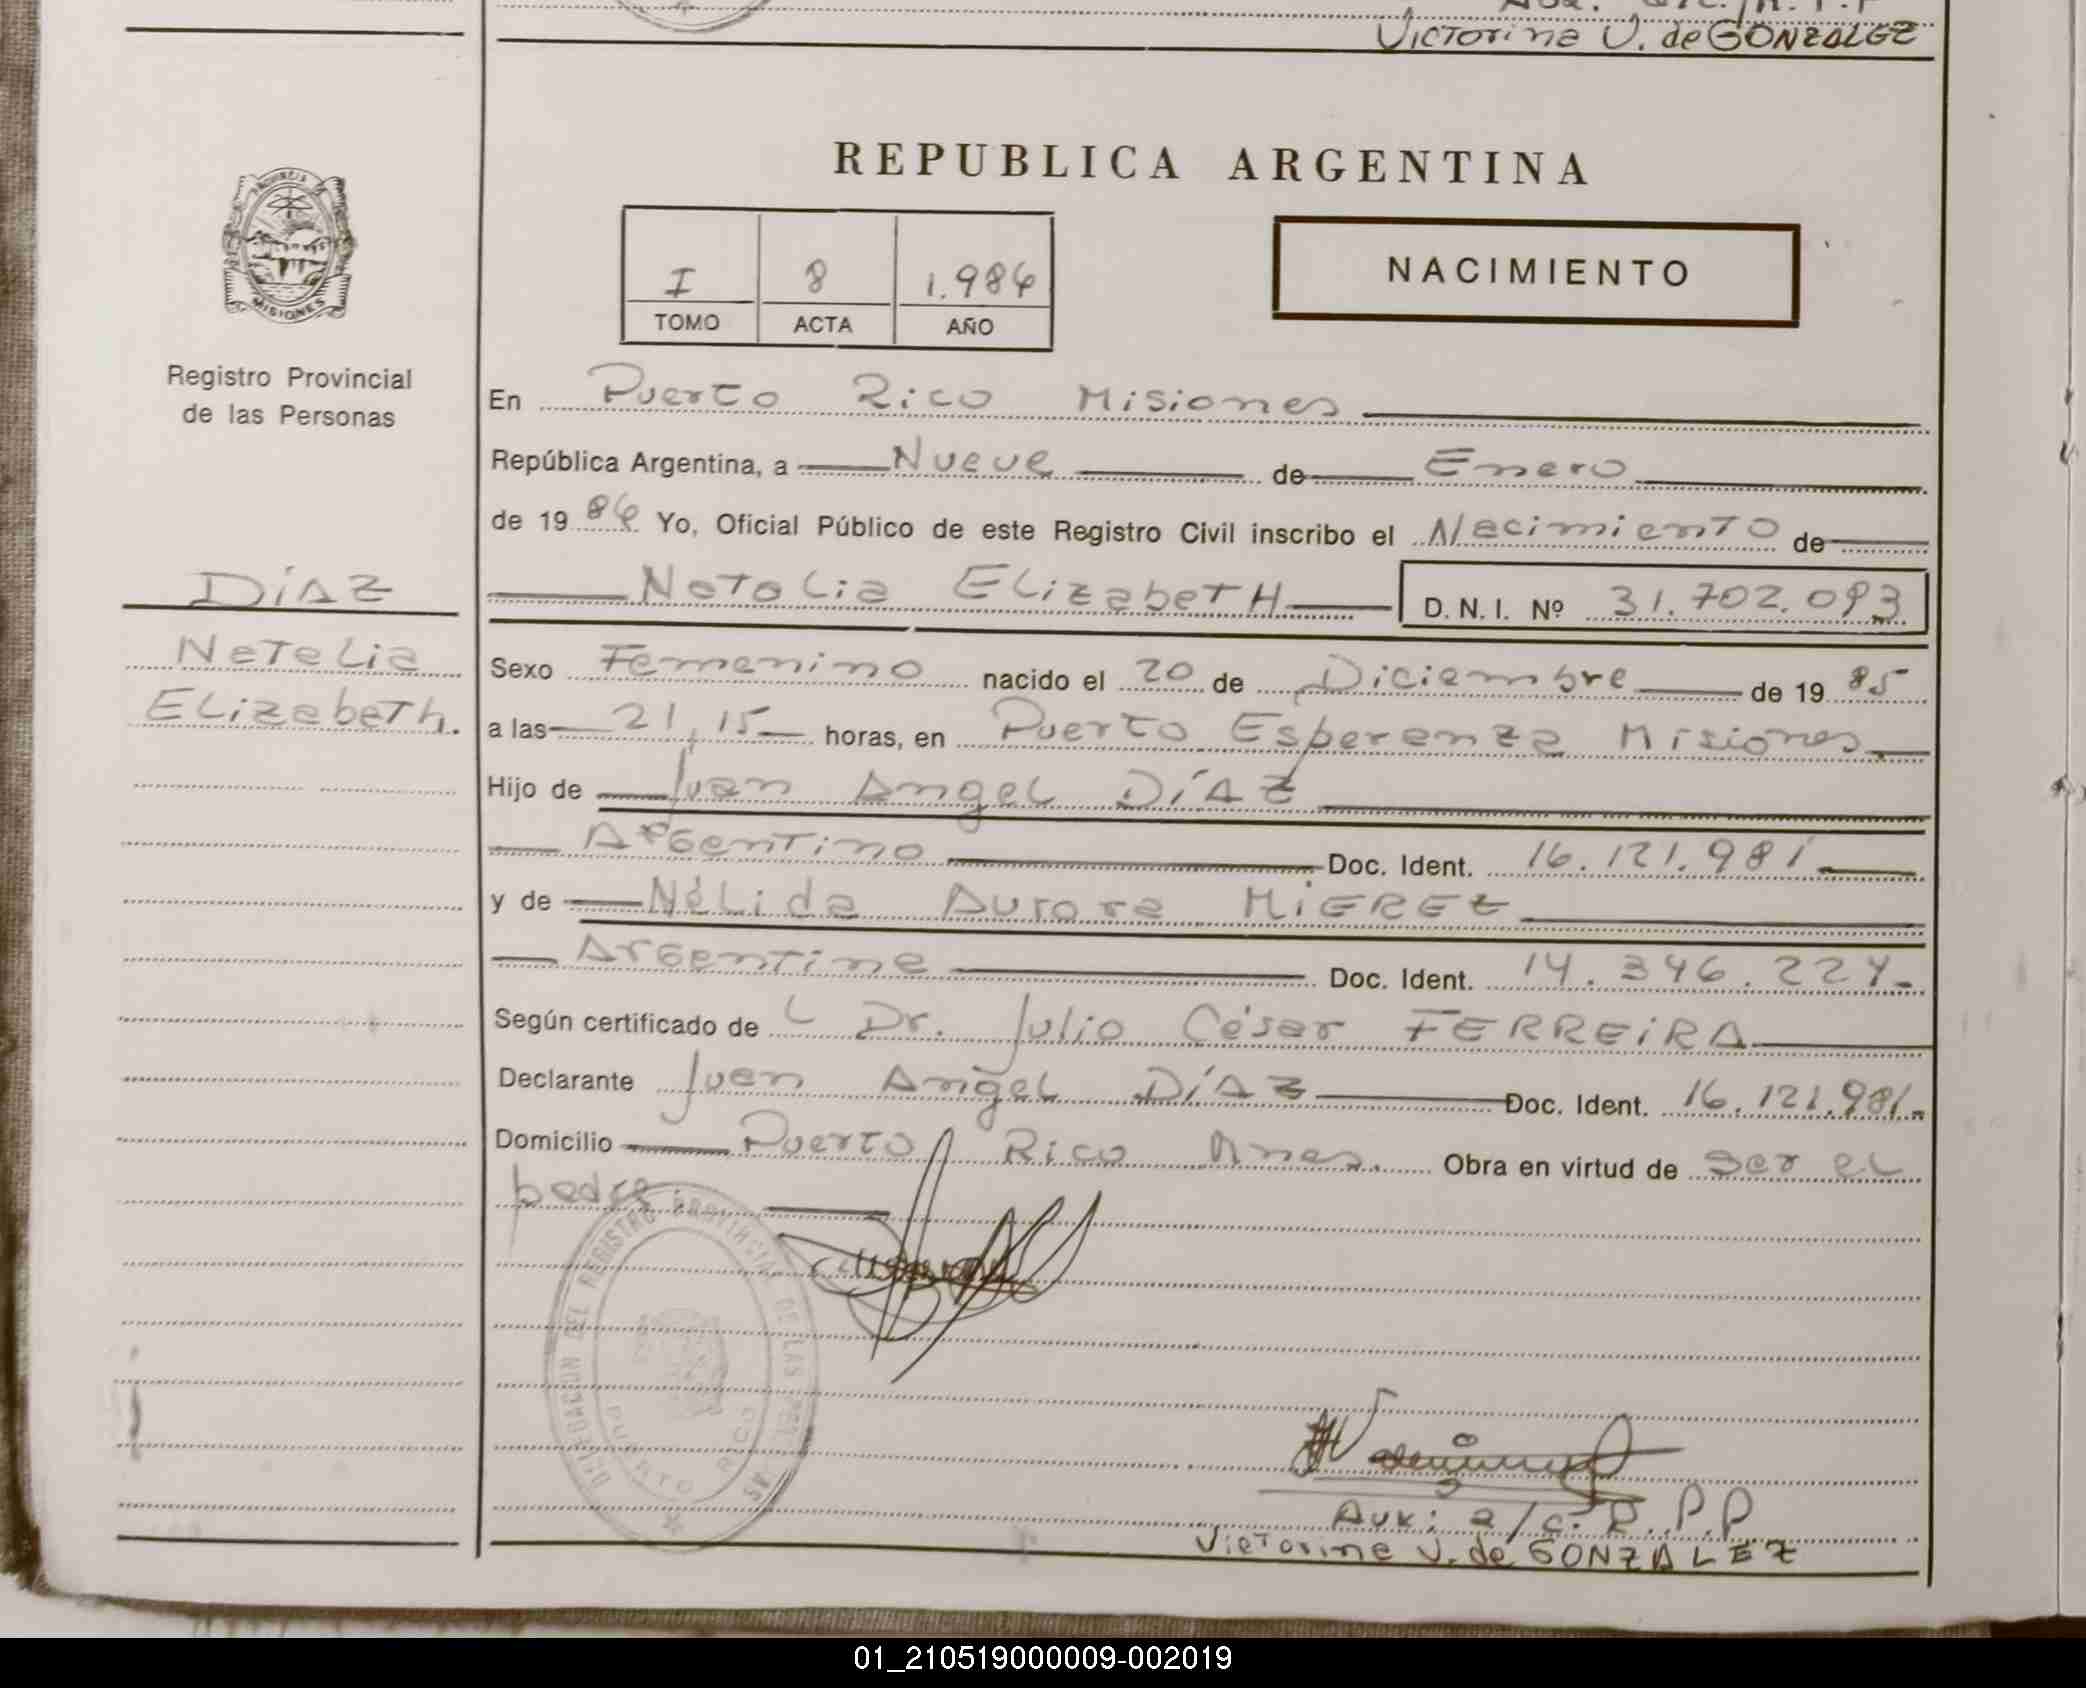 Victorina V. de GONZALEZ
PROVINCIA DE
MISIONES
Registro Provincial
de las Personas
DíAZ
Natalia
Elizabeth.
REPUBLICA ARGENTINA
I 8 1.986
TOMO ACTA AÑO
NACIMIENTO
En Puerto Rico Misiones
República Argentina, a Nueve de Enero
de 19 86 Yo, Oficial Público de este Registro Civil inscribo el Nacimiento de
Natalia Elizabeth D. N. I. Nº 31.702.093
Sexo Femenino nacido el 20 de Diciembre de 19 85
a las 21,15 horas, en Puerto Esperanza Misiones.
Hijo de Juan Angel DíAZ
Argentino Doc. Ident. 16.121.981
y de Nélida Aurora MiEREZ
Argentina Doc. Ident. 14.346.224.
Según certificado de L Dr. Julio César FERREiRA
Declarante Juan Angel DíAZ Doc. Ident. 16.121.981.
Domicilio Puerto Rico Mnes. Obra en virtud de ser el
padre.
DELEGACION DEL REGISTRO PROVINCIAL DE LAS PERSONAS
PUERTO RICO
Aux: a/c. R.P.P
Victorina V. de GONZALEZ
01_210519000009-002019